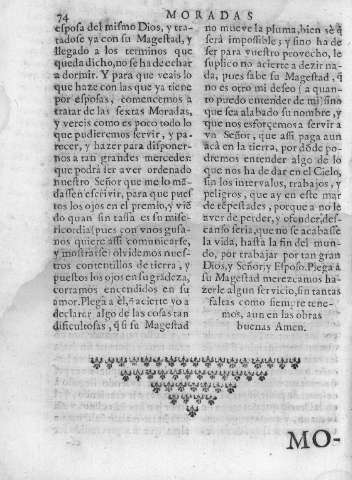 74 MORADAS
esposa del mismo Dios, y tra-
tadose ya con su Magestad, y
llegado a los terminos que
queda dicho, no se ha de echar
a dormir. Y para que veais lo
que haze con las que ya tiene
por esposas, comencemos a
tratar de las sextas Moradas,
y vereis como es poco todo lo
que pudieremos servir, y pa-
decer, y hazer para disponer-
nos a tan grandes mercedes:
que podrà ser aver ordenado
nuestro Señor que me lo mã-
dassen escrivir, para que pues
tos los ojos en el premio, y viẽ
do quan sin tassa es su mise-
ricordia (pues con vnos gusa-
nos quiere assi comunicarse,
y mostrarse) olvidemos nues-
tros contentillos de tierra, y
puestos los ojos en su grãdeza,
corramos encendidos en su
amor. Plega a èl, q̃ acierte yo a
declarar algo de las cosas tan
dificultosas, q̃ si su Magestad
no mueve la pluma, bien sè q̃
serà impossible; y sino ha de
ser para vuestro provecho, le
suplico no acierte a dezir na-
da, pues sabe su Magestad, q̃
no es otro mi deseo (a quan-
to puedo entender de mi) sino
que sea alabado su nombre, y
que nos esforçemos a servir a
vn Señor, que assi paga aun
acà en la tierra, por dõde po-
dremos entender algo de lo
que nos ha de dar en el Cielo,
sin los intervalos, trabajos, y
peligros, que ay en este mar
de tẽpestades, porque a no le
aver de perder, y ofender, des-
canso seria, que no se acabasse
la vida, hasta la fin del mun-
do, por trabajar por tan gran
Dios, y Señor, y Esposo. Plega à
su Magestad merezcamos ha-
zerle algun servicio, sin tantas
faltas como siempre tene-
mos, aun en las obras
buenas Amen.
MO-